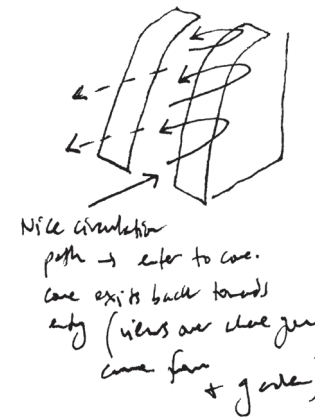 Nice circulation
path → enter to core.
core exits back towards
entry (views over where you
came from
+ garden)